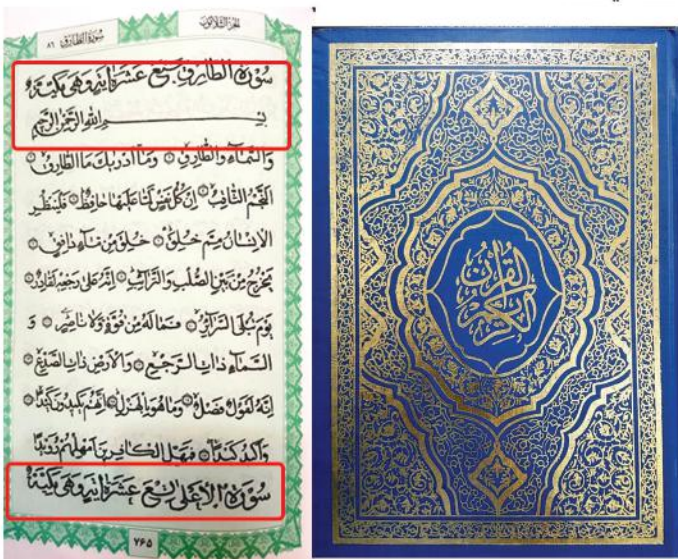 الجزء الثلاثون
سورة الطارق ٨٦
سورة الطارق سبع عشرة اية وهي مكية
بسم الله الرحمن الرحيم
وَالسَّمَاءِ وَالطَّارِقِ وَمَا أَدْرٰيكَ مَا الطَّارِقُ
النَّجْمُ الثَّاقِبُ إِنْ كُلُّ نَفْسٍ لَمَّا عَلَيْهَا حَافِظٌ فَلْيَنْظُرِ
الْاِنْسَانُ مِمَّ خُلِقَ خُلِقَ مِنْ مَاءٍ دَافِقٍ
يَخْرُجُ مِنْ بَيْنِ الصُّلْبِ وَالتَّرَائِبِ إِنَّهُ عَلٰى رَجْعِهِ لَقَادِرٌ
يَوْمَ تُبْلَى السَّرَائِرُ فَمَا لَهُ مِنْ قُوَّةٍ وَلَا نَاصِرٍ وَ
السَّمَاءِ ذَاتِ الرَّجْعِ وَالْاَرْضِ ذَاتِ الصَّدْعِ
إِنَّهُ لَقَوْلٌ فَصْلٌ وَمَا هُوَ بِالْهَزْلِ إِنَّهُمْ يَكِيدُونَ كَيْدًا
وَأَكِيدُ كَيْدًا فَمَهِّلِ الْكَافِرِينَ أَمْهِلْهُمْ رُوَيْدًا
سورة الاعلى تسع عشرة اية وهي مكية
٧۶۵
القرآن الكريم